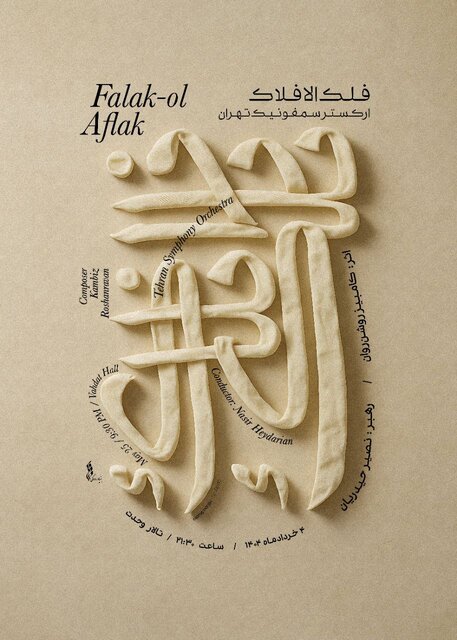 Falak-ol
Aflak
فلک الافلاک
ارکستر سمفونیک تهران
Tehran Symphony Orchestra
Composer
Kambiz
Roshanravan
Conductor: Nasir Heydarian
May 25 / 9:30 PM / Vahdat Hall
اثر: کامبیز روشن روان / رهبر: نصیر حیدریان
۴ خردادماه ۱۴۰۴ / ساعت ۲۱:۳۰ / تالار وحدت